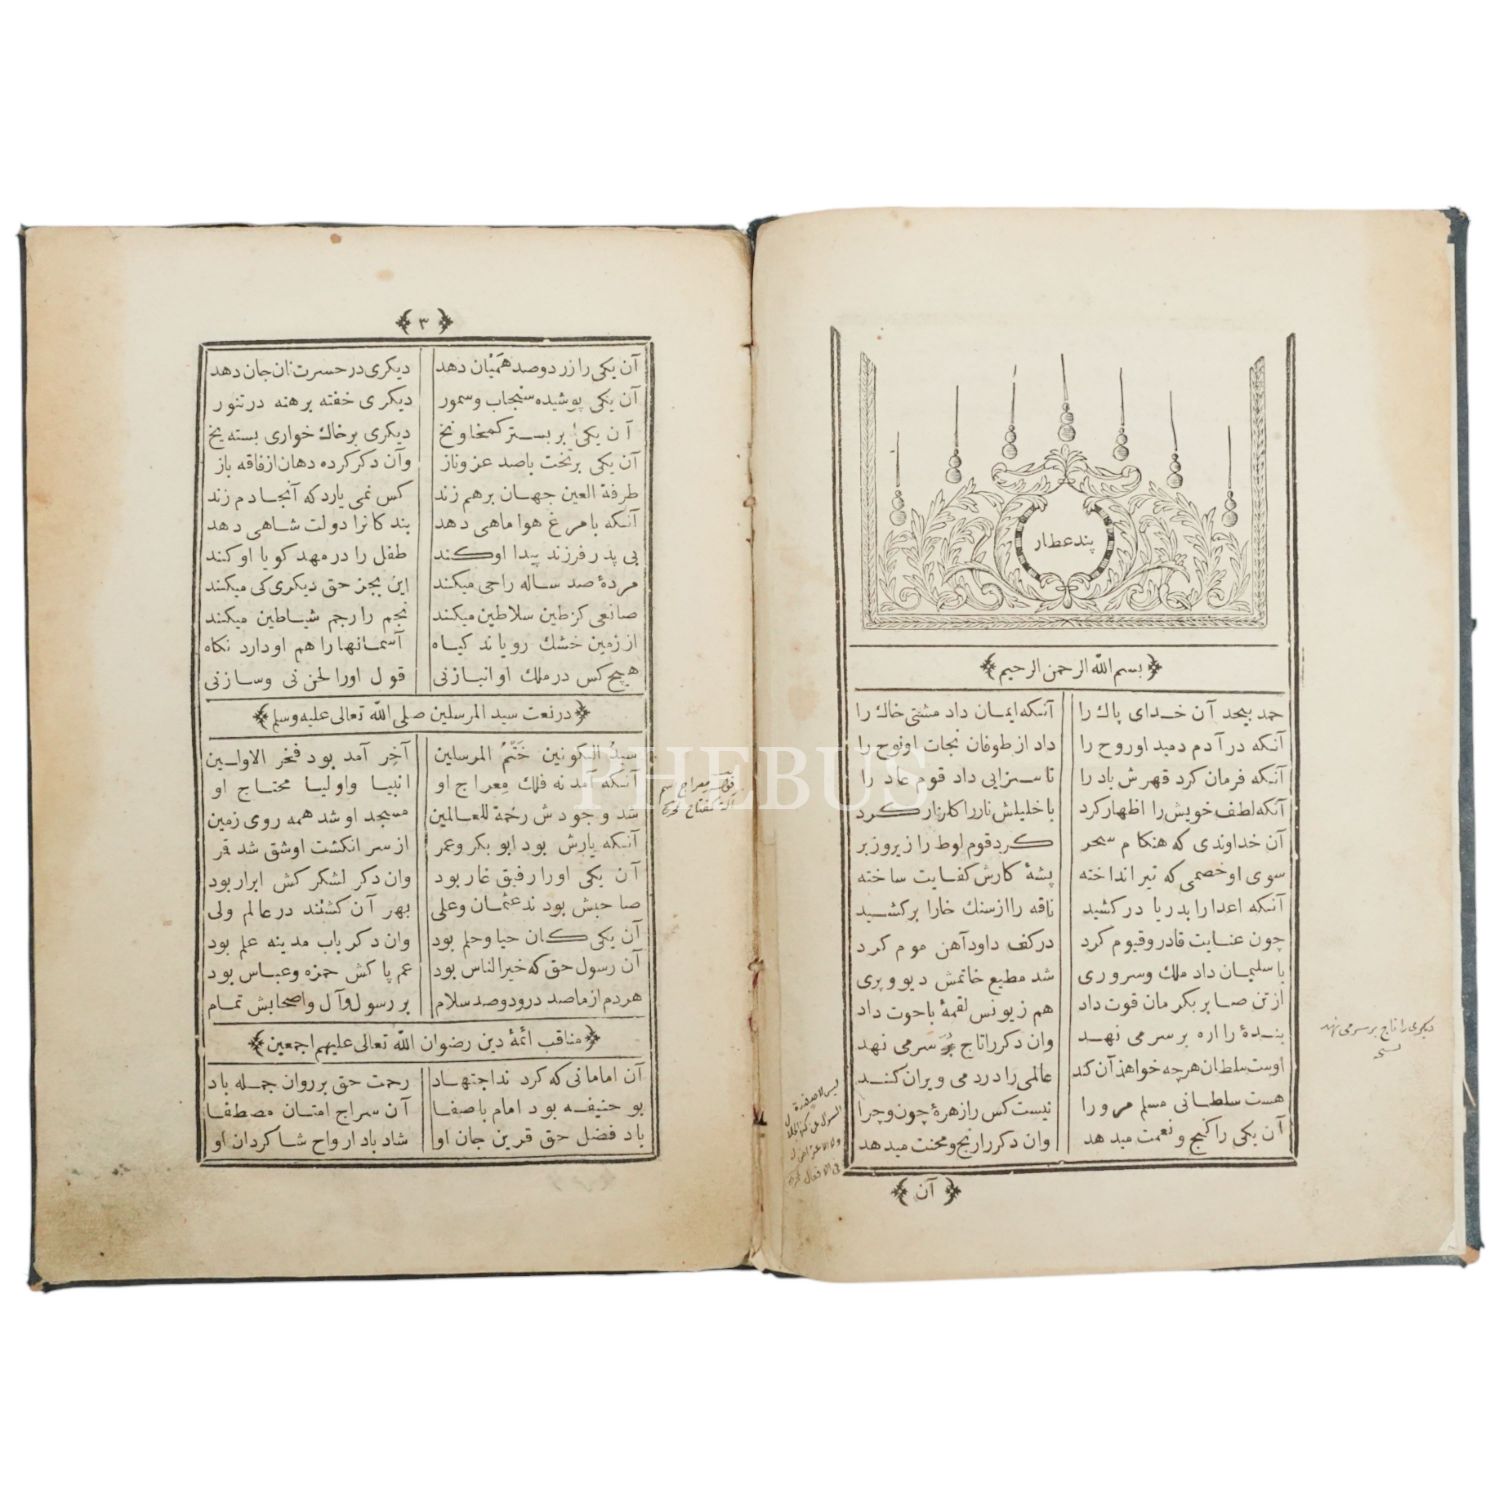 پند عطار
بسم الله الرحمن الرحيم
حمد بيحد آن خداى پاك را آنكه ايمان داد مشتى خاك را
آنكه در آدم دميد او روح را داد از طوفان نجات او نوح را
آنكه فرمان كرد قهرش باد را تا سزايى داد قوم عاد را
آنكه لطف خويش را اظهار كرد با خليلش نار را كلزار كرد
آن خداوندى كه هنكام سحر كرد قوم لوط را زير وزبر
سوى او خصمى كه تير انداخته پشهٔ كارش كفايت ساخته
آنكه اعدا را بدريا در كشيد ناقه را از سنك خارا بر كشيد
چون عنايت قادر وقيوم كرد در كف داود آهن موم كرد
با سليمان داد ملك وسرورى شد مطيع خاتمش ديو وپرى
از تن صابر بكرمان قوت داد هم زيونس لقمهٔ با حوت داد
بندهٔ را اره بر سر مى نهد وان دكر را تاج بر سر مى نهد
اوست سلطان هرچه خواهد آن كند عالمى را در دمى ويران كند
هست سلطانى مسلم مرورا نيست كس را زهرهٔ چون وچرا
آن يكى را كنج ونعمت ميدهد وان دكر را رنج ومحنت ميدهد
آن
ديكرى را تاج بر سر مى نهد
نسخه
٣
آن يكى را زر دو صد هميان دهد ديكرى در حسرت نان جان دهد
آن يكى پوشيده سنجاب وسمور ديكرى خفته برهنه در تنور
آن يكى بر بستر كمخا ونخ ديكرى بر خاك خوارى بسته يخ
آن يكى بر تخت با صد عز وناز وآن دكر كرده دهان از فاقه باز
طرفة العين جهان برهم زند كس نمى يارد كه آنجا دم زند
آنكه با مرغ هوا ماهى دهد بندكانرا دولت شاهى دهد
بى پدر فرزند پيدا او كند طفل را در مهد كويا او كند
مردهٔ صد ساله را حى ميكند اين بجز حق ديكرى كى ميكند
صانعى كز طين سلاطين ميكند نجم را رجم شياطين ميكند
از زمين خشك روياند كياه آسمانها را هم او دارد نكاه
هيچ كس در ملك او انباز نى قول او را لحن نى وساز نى
در نعت سيد المرسلين صلى الله تعالى عليه وسلم
سيد الكونين ختم المرسلين آخر آمد بود فخر الاولين
آنكه آمد نه فلك معراج او انبيا واوليا محتاج او
شد وجودش رحمة للعالمين مسجد او شد همه روى زمين
آنكه يارش بود ابو بكر وعمر از سر انكشت او شق شد قمر
آن يكى او را رفيق غار بود وان دكر لشكر كش ابرار بود
صاحبش بودند عثمان وعلى بهر آن كشتند در عالم ولى
آن يكى كان حيا وحلم بود وان دكر باب مدينه علم بود
آن رسول حق كه خير الناس بود عم پاكش حمزه وعباس بود
هر دم از ما صد درود وصد سلام بر رسول وآل واصحابش تمام
مناقب ائمهٔ دين رضوان الله تعالى عليهم اجمعين
آن امامانى كه كردند اجتهاد رحمت حق بر روان جمله باد
بو حنيفه بود امام با صفا آن سراج امتان مصطفا
باد فضل حق قرين جان او شاد باد ارواح شاكردان او
PHEBUS